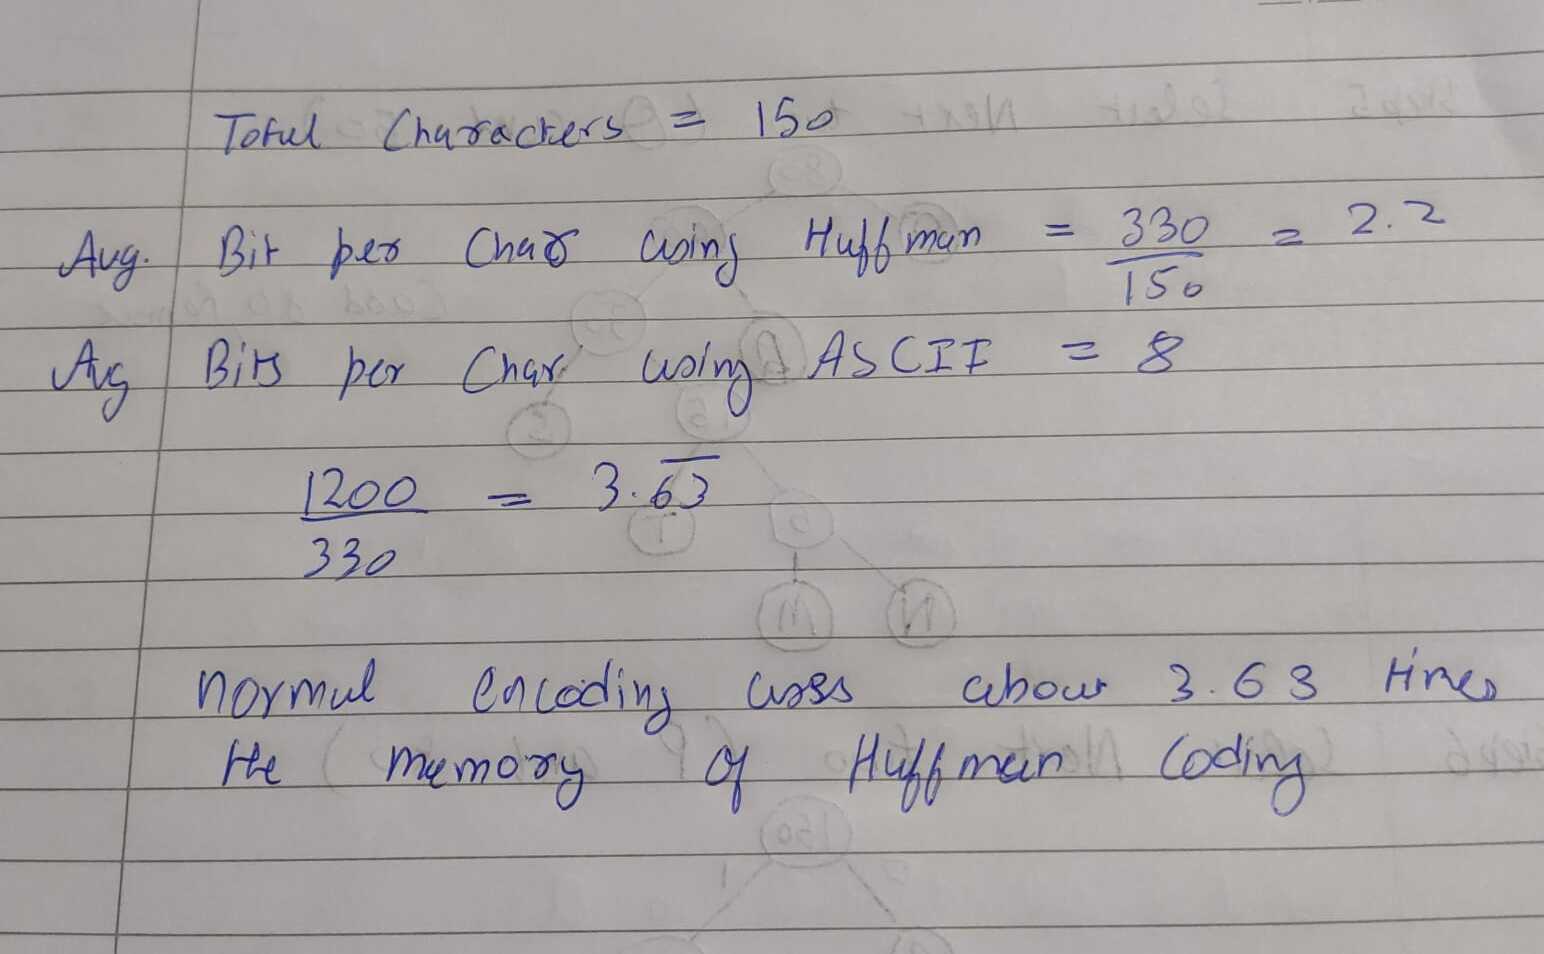 Total Characters = 150
Avg. Bit per Char using Huffman = 330/150 = 2.2
Avg Bits per Char using ASCII = 8
1200/330 = 3.6̅3̅
normal encoding uses about 3.63 times
the memory of Huffman Coding